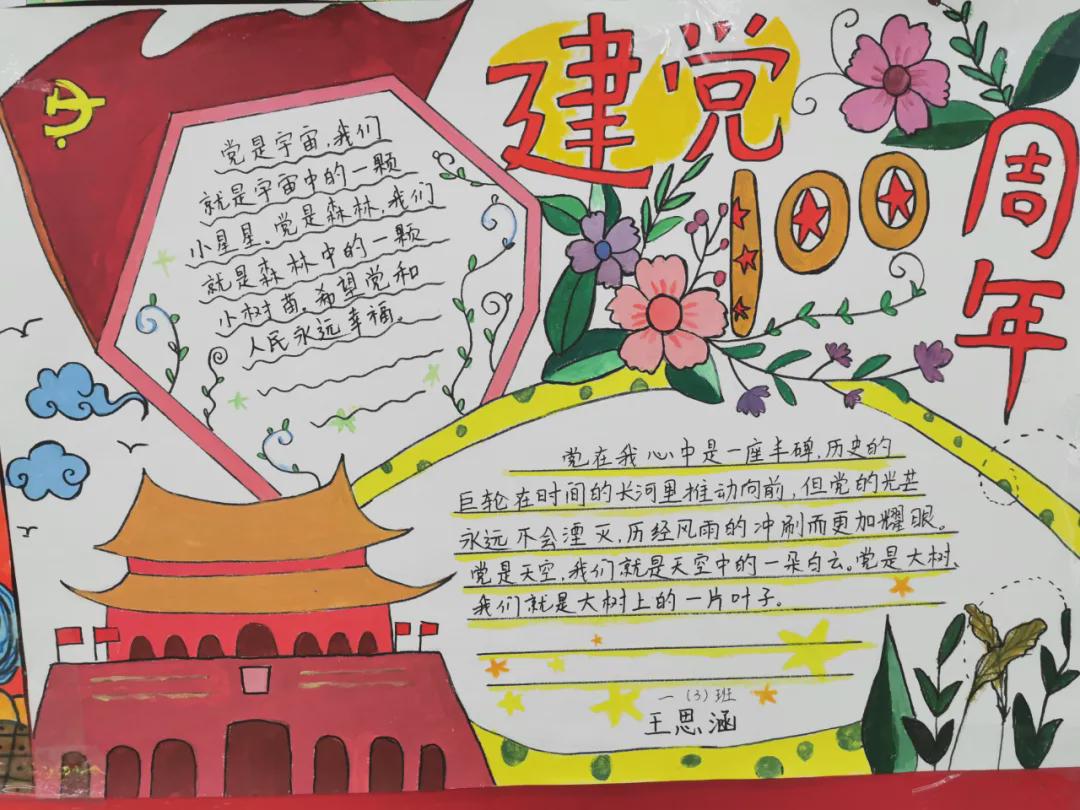 建党
100
周年
党是宇宙，我们
就是宇宙中的一颗
小星星。党是森林，我们
就是森林中的一颗
小树苗。希望党和
人民永远幸福。
党在我心中是一座丰碑，历史的
巨轮在时间的长河里推动向前，但党的光芒
永远不会湮灭，历经风雨的冲刷而更加耀眼。
党是天空，我们就是天空中的一朵白云。党是大树、
我们就是大树上的一片叶子。
一（3）班
王思涵